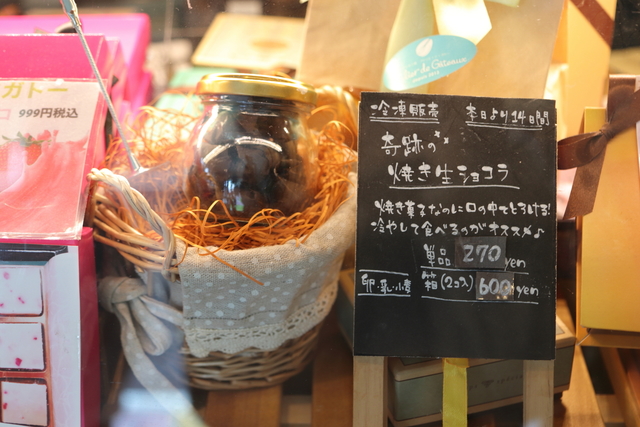 ガトー
999円税込
de Gâteaux
冷凍販売 本日より14日間
奇跡の
焼き生ショコラ
焼き菓子なのに口の中でとろける!
冷やして食べるのがオススメ♪
単品 270yen
卵・乳・小麦 箱(2コ入) 600yen